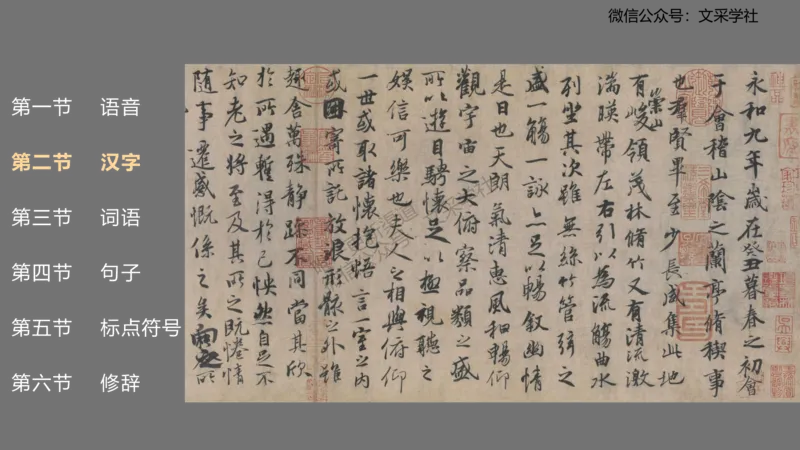 微信公众号：文采学社
第一节 语音
第二节 汉字
第三节 词语
第四节 句子
第五节 标点符号
第六节 修辞
永和九年歲在癸丑暮春之初會
于會稽山陰之蘭亭脩稧事
也羣賢畢至少長咸集此地
有崇山峻領茂林脩竹又有清流激
湍暎帶左右引以為流觴曲水
列坐其次雖無絲竹管弦之
盛一觴一詠亦足以暢敘幽情
是日也天朗氣清惠風和暢仰
觀宇宙之大俯察品類之盛
所以遊目騁懷足以極視聽之
娛信可樂也夫人之相與俯仰
一世或取諸懷抱悟言一室之內
或因寄所託放浪形骸之外雖
趣舍萬殊靜躁不同當其欣
於所遇暫得於己怏然自足不
知老之將至及其所之既惓情
隨事遷感慨係之矣向之所